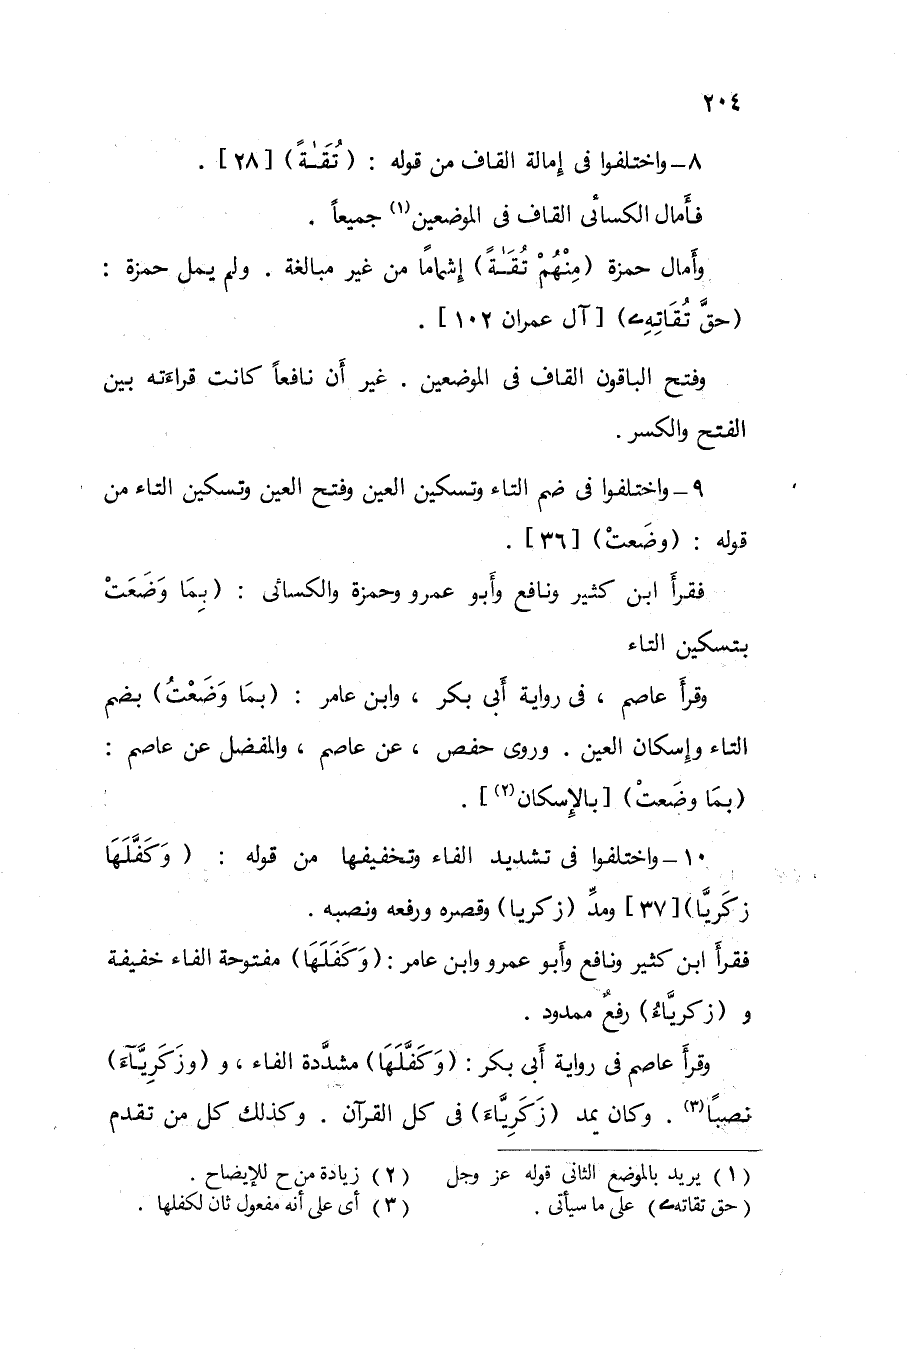 ٢٠٤
٨ـ واختلفوا فى إمالة القاف من قوله : ( تُقَـٰةً ) [ ٢٨ ] .
فأمال الكسائى القاف فى الموضعين(١) جميعاً .
وأمال حمزة ( مِنْهُمْ تُقَـٰةً ) إشماماً من غير مبالغة . ولم يمل حمزة :
( حقَّ تُقَاتِهِے ) [ آل عمران ١٠٢ ] .
وفتح الباقون القاف فى الموضعين . غير أن نافعاً كانت قراءته بين
الفتح والكسر .
٩ـ واختلفوا فى ضم التاء وتسكين العين وفتح العين وتسكين التاء من
قوله : ( وضَعتْ ) [ ٣٦ ] .
فقرأ ابن كثير ونافع وأبو عمرو وحمزة والكسائى : ( بِمَا وَضَعَتْ
بتسكين التاء
وقرأ عاصم ، فى رواية أبى بكر ، وابن عامر : ( بمَا وَضَعْتُ ) بضم
التاء وإسكان العين . وروى حفص ، عن عاصم ، والمفضل عن عاصم :
( بمَا وضَعتْ ) [ بالإسكان(٢) ] .
١٠ـ واختلفوا فى تشديد الفاء وتخفيفها من قوله : ( وَكَفَّلَهَا
زكَرِيَّا ) [ ٣٧ ] ومدِّ ( زكريا ) وقصره ورفعه ونصبه .
فقرأ ابن كثير ونافع وأبو عمرو وابن عامر : ( وَكَفَلَهَا ) مفتوحة الفاء خفيفة
و ( زكريَّاءُ ) رفعٌ ممدود .
وقرأ عاصم فى رواية أبى بكر : ( وَكَفَّلَهَا ) مشدَّدة الفاء ، و ( وزَكَرِيَّآءَ )
نصباً(٣) . وكان يمد ( زَكَرِيَّاءَ ) فى كل القرآن . وكذلك كل من تقدم
( ١ ) يريد بالموضع الثانى قوله عز وجل
( حق تقاتهے ) على ما سيأتى .
( ٢ ) زيادة من ح للإيضاح .
( ٣ ) أى على أنه مفعول ثان لكفلها .